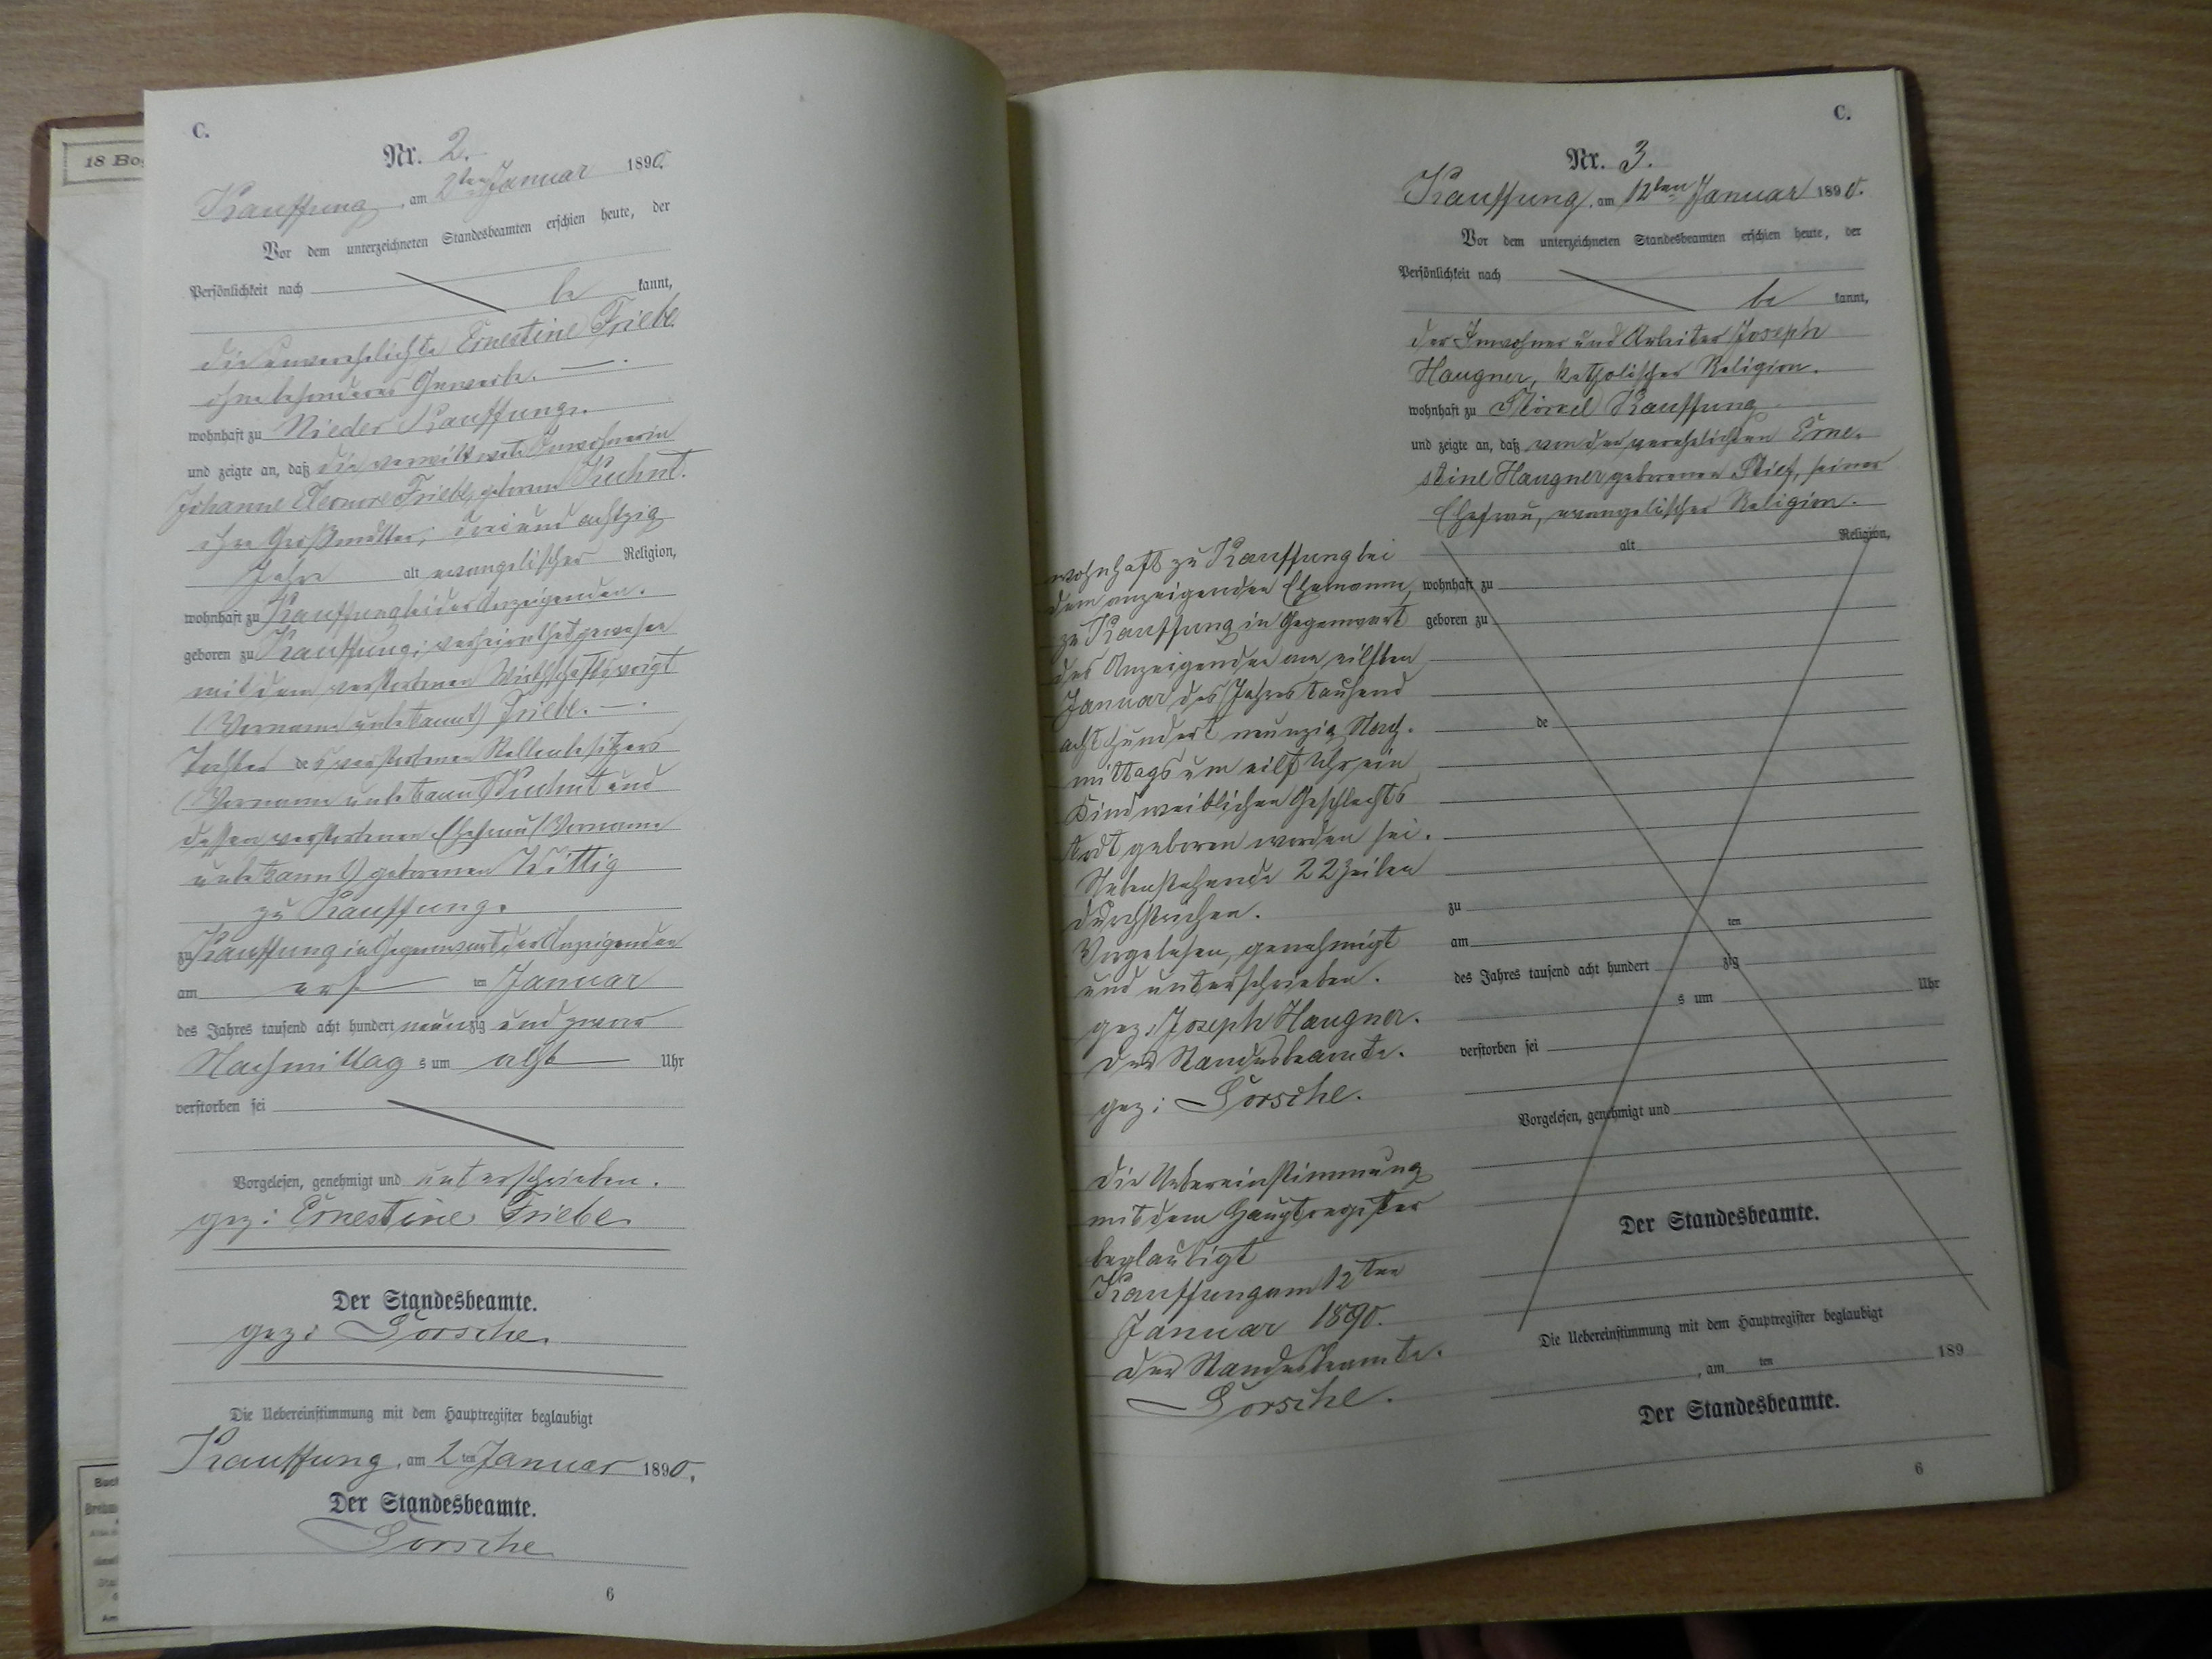 18 Bog
C.
Nr. 2.
Kauffung, am 2ten Januar 1890.
Vor dem unterzeichneten Standesbeamten erschien heute, der
Persönlichkeit nach
be kannt,
die unverehelichte Ernestine Friebe
ohne besonderes Gewerbe. —.
wohnhaft zu Nieder Kauffung.
und zeigte an, daß die verwittwete Inwohnerin
Johanne Eleonore Friebe, geborene Kuhnt.
ihre Großmutter, drei und achtzig
Jahre alt evangelischer Religion,
wohnhaft zu Kauffung bei der Anzeigenden.
geboren zu Kauffung; verheirathet gewesen
mit dem verstorbenen Wirthschaftsvoigt
(Vorname unbekannt) Friebe. —.
Tochter des verstorbenen Stellenbesitzers
(Vorname unbekannt) Kuhnt und
dessen verstorbenen Ehefrau (Vorname
unbekannt) geborenen Wittig
zu Kauffung.
zu Kauffung in Gegenwart der Anzeigenden
am ersten Januar
des Jahres tausend acht hundert neunzig und zwar
Nachmittags um acht Uhr
verstorben sei
Vorgelesen, genehmigt und unterschrieben.
gez: Ernestine Friebe
Der Standesbeamte.
gez: Sorsche.
Die Uebereinstimmung mit dem Hauptregister beglaubigt
Kauffung, am 2ten Januar 1890.
Der Standesbeamte.
Sorsche
6
C.
Nr. 3.
Kauffung, am 12ten Januar 1890.
Vor dem unterzeichneten Standesbeamten erschien heute, der
Persönlichkeit nach
be kannt,
der Inwohner und Arbeiter Joseph
Haugner, katholischer Religion.
wohnhaft zu Kauffung
und zeigte an, daß von der verehelichten Erne-
stine Haugner geborenen seiner
Ehefrau, evangelischer Religion.
alt Religion,
wohnhaft zu
geboren zu
de
zu
am ten
des Jahres tausend acht hundert zig
s um Uhr
verstorben sei
Vorgelesen, genehmigt und
Der Standesbeamte.
Die Uebereinstimmung mit dem Hauptregister beglaubigt
, am ten 189
Der Standesbeamte.
6
wohnhaft zu Kauffung bei
dem anzeigenden Ehemann,
zu Kauffung in Gegenwart
des Anzeigenden am eilften
Januar des Jahres tausend
acht hundert neunzig Nach-
mittags um eilf Uhr ein
Kind weiblichen Geschlechts
todt geboren worden sei.
Nebenstehende 22 Zeilen
durchstrichen.
Vorgelesen, genehmigt
und unterschrieben.
gez: Joseph Haugner.
Der Standesbeamte.
gez: Sorsche.
Die Uebereinstimmung
mit dem Hauptregister
beglaubigt
Kauffung am 12ten
Januar 1890.
Der Standesbeamte.
Sorsche.